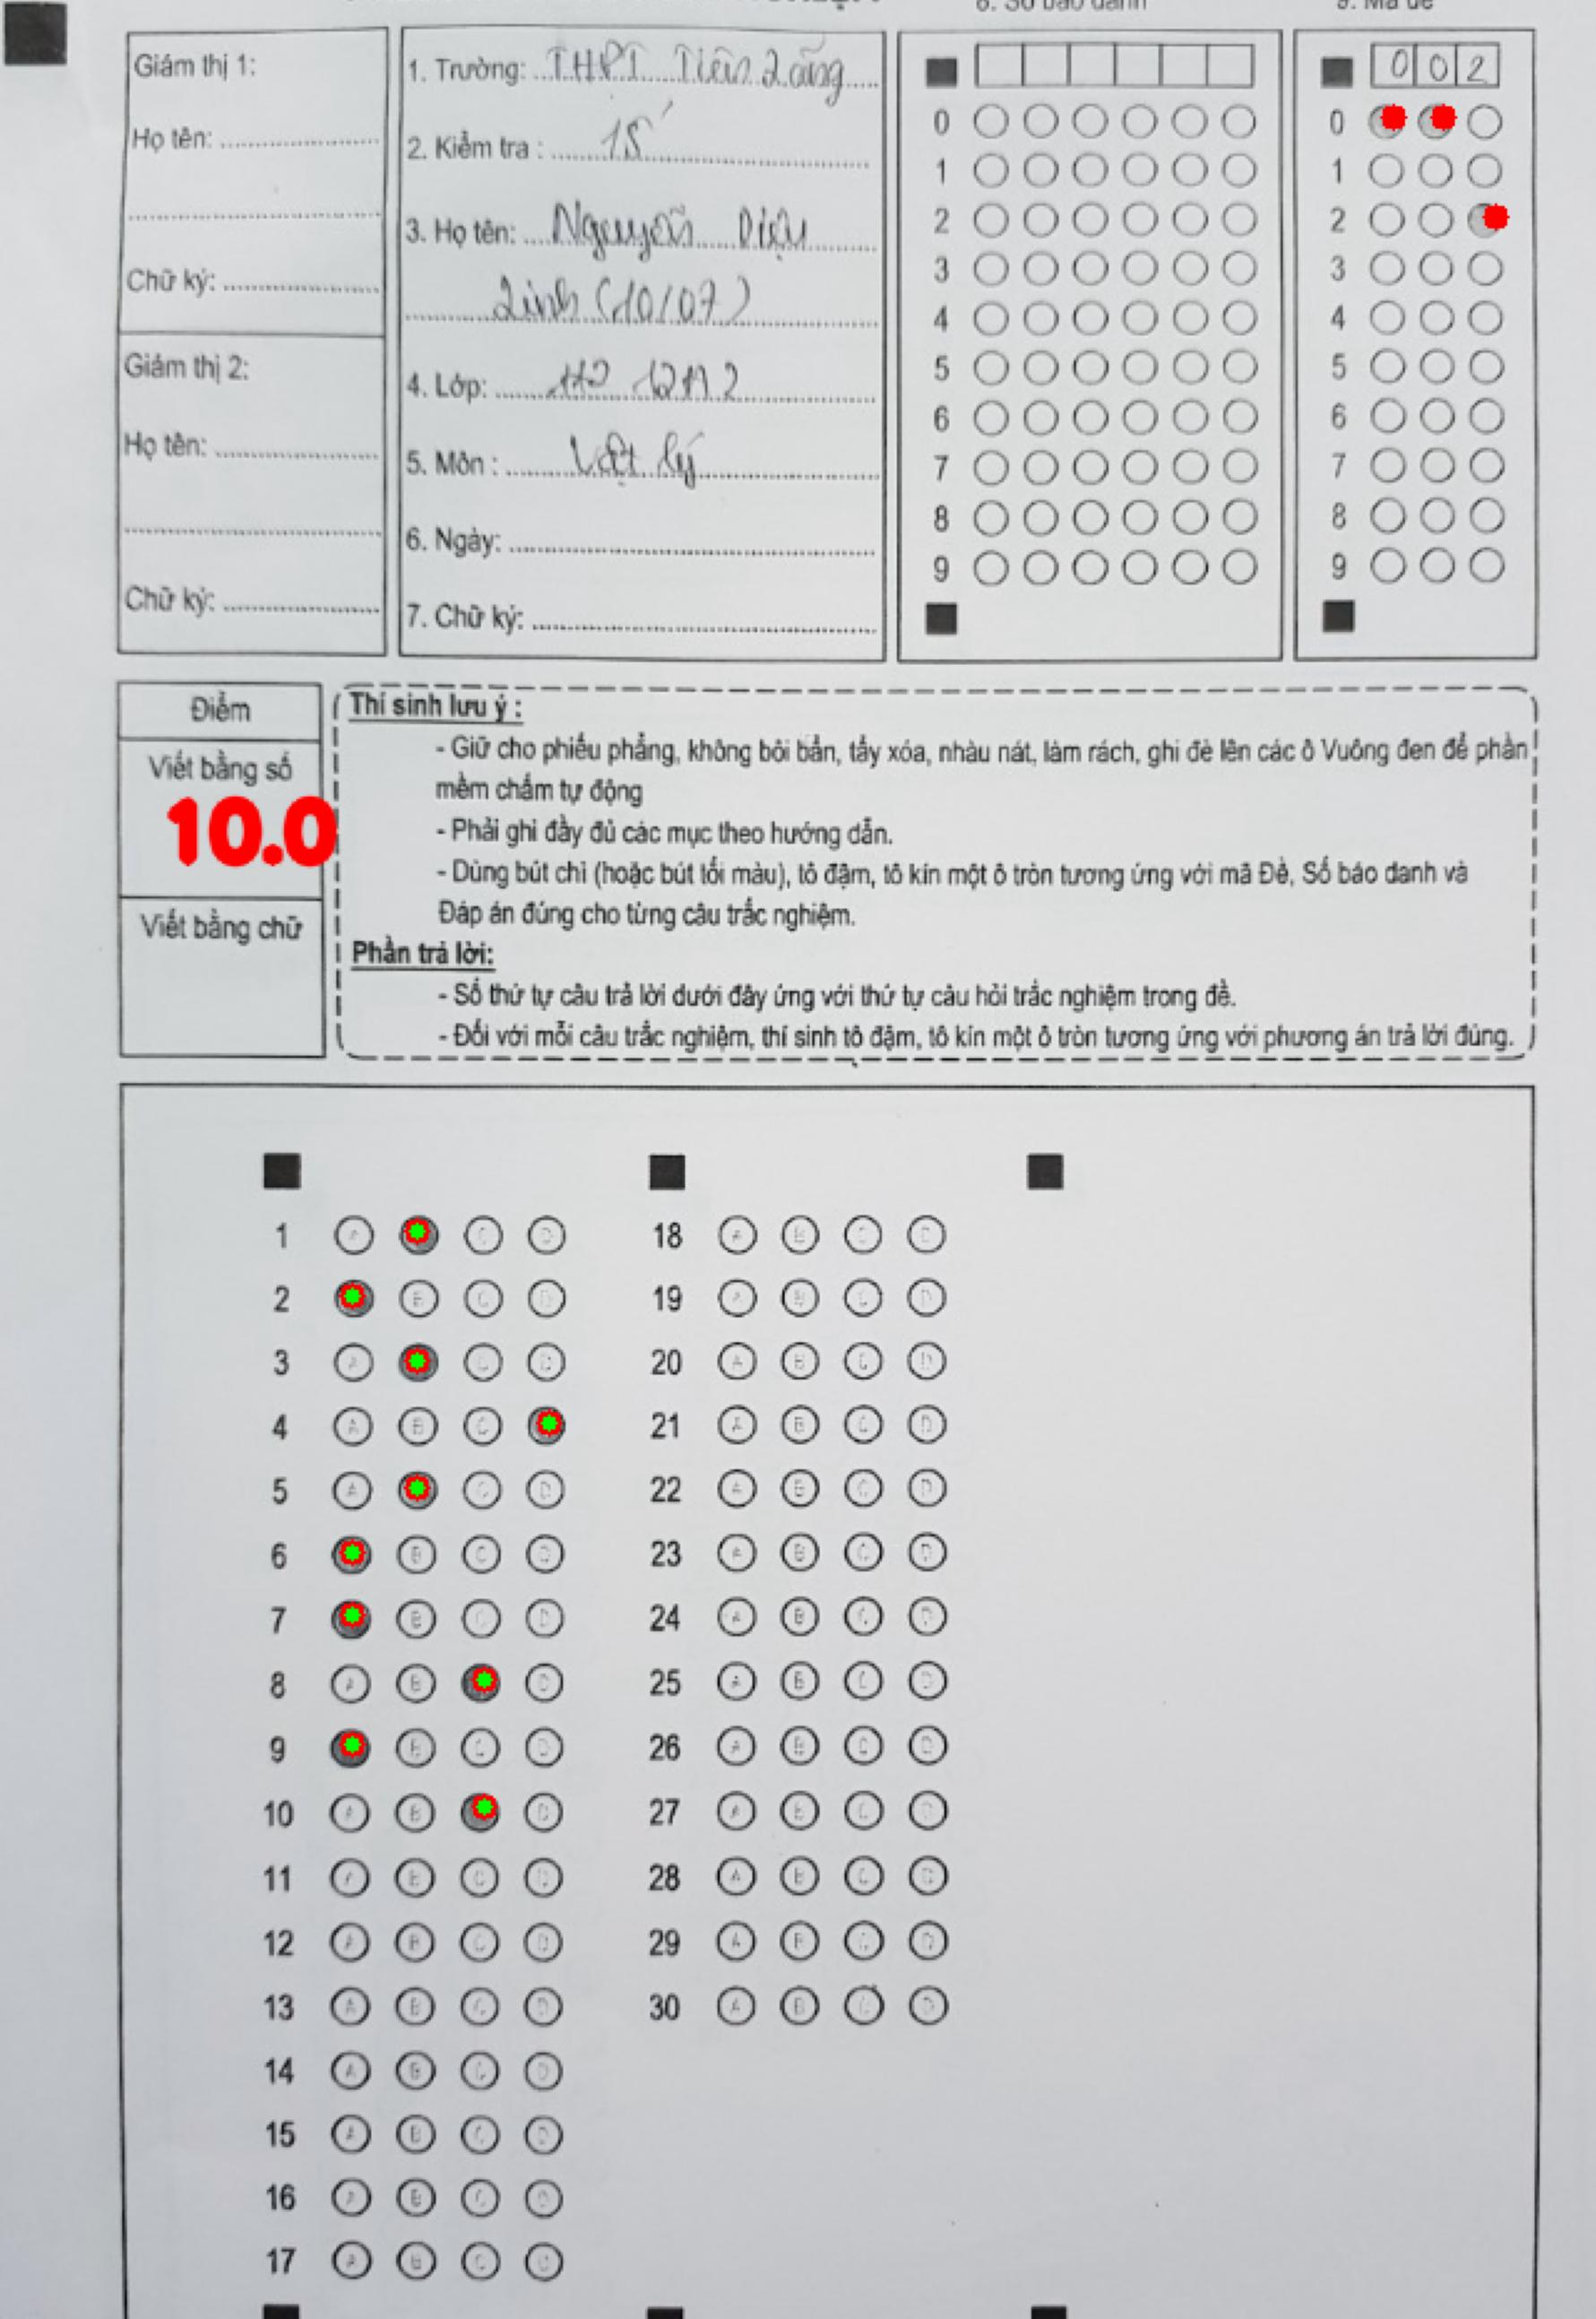 8. Số báo danh
9. Mã đề
Giám thị 1:
Họ tên:
Chữ ký:
Giám thị 2:
Họ tên:
Chữ ký:
1. Trường: THPT Tiên Lãng
2. Kiểm tra : 15'
3. Họ tên: Nguyễn Diệu
Linh (10/07)
4. Lớp: 12A2
5. Môn : Vật lý
6. Ngày:
7. Chữ ký:
0
1
2
3
4
5
6
7
8
9
0 0 2
0
1
2
3
4
5
6
7
8
9
Điểm
Viết bằng số
10.0
Viết bằng chữ
Thí sinh lưu ý :
- Giữ cho phiếu phẳng, không bôi bẩn, tẩy xóa, nhàu nát, làm rách, ghi đè lên các ô Vuông đen để phần
mềm chấm tự động
- Phải ghi đầy đủ các mục theo hướng dẫn.
- Dùng bút chì (hoặc bút tối màu), tô đậm, tô kín một ô tròn tương ứng với mã Đề, Số báo danh và
Đáp án đúng cho từng câu trắc nghiệm.
Phần trả lời:
- Số thứ tự câu trả lời dưới đây ứng với thứ tự câu hỏi trắc nghiệm trong đề.
- Đối với mỗi câu trắc nghiệm, thí sinh tô đậm, tô kín một ô tròn tương ứng với phương án trả lời đúng.
1 A C D
2 B C D
3 A C D
4 A B C
5 A C D
6 B C D
7 B C D
8 A B D
9 B C D
10 A B D
11 A B C D
12 A B C D
13 A B C D
14 A B C D
15 A B C D
16 A B C D
17 A B C D
18 A B C D
19 A B C D
20 A B C D
21 A B C D
22 A B C D
23 A B C D
24 A B C D
25 A B C D
26 A B C D
27 A B C D
28 A B C D
29 A B C D
30 A B C D